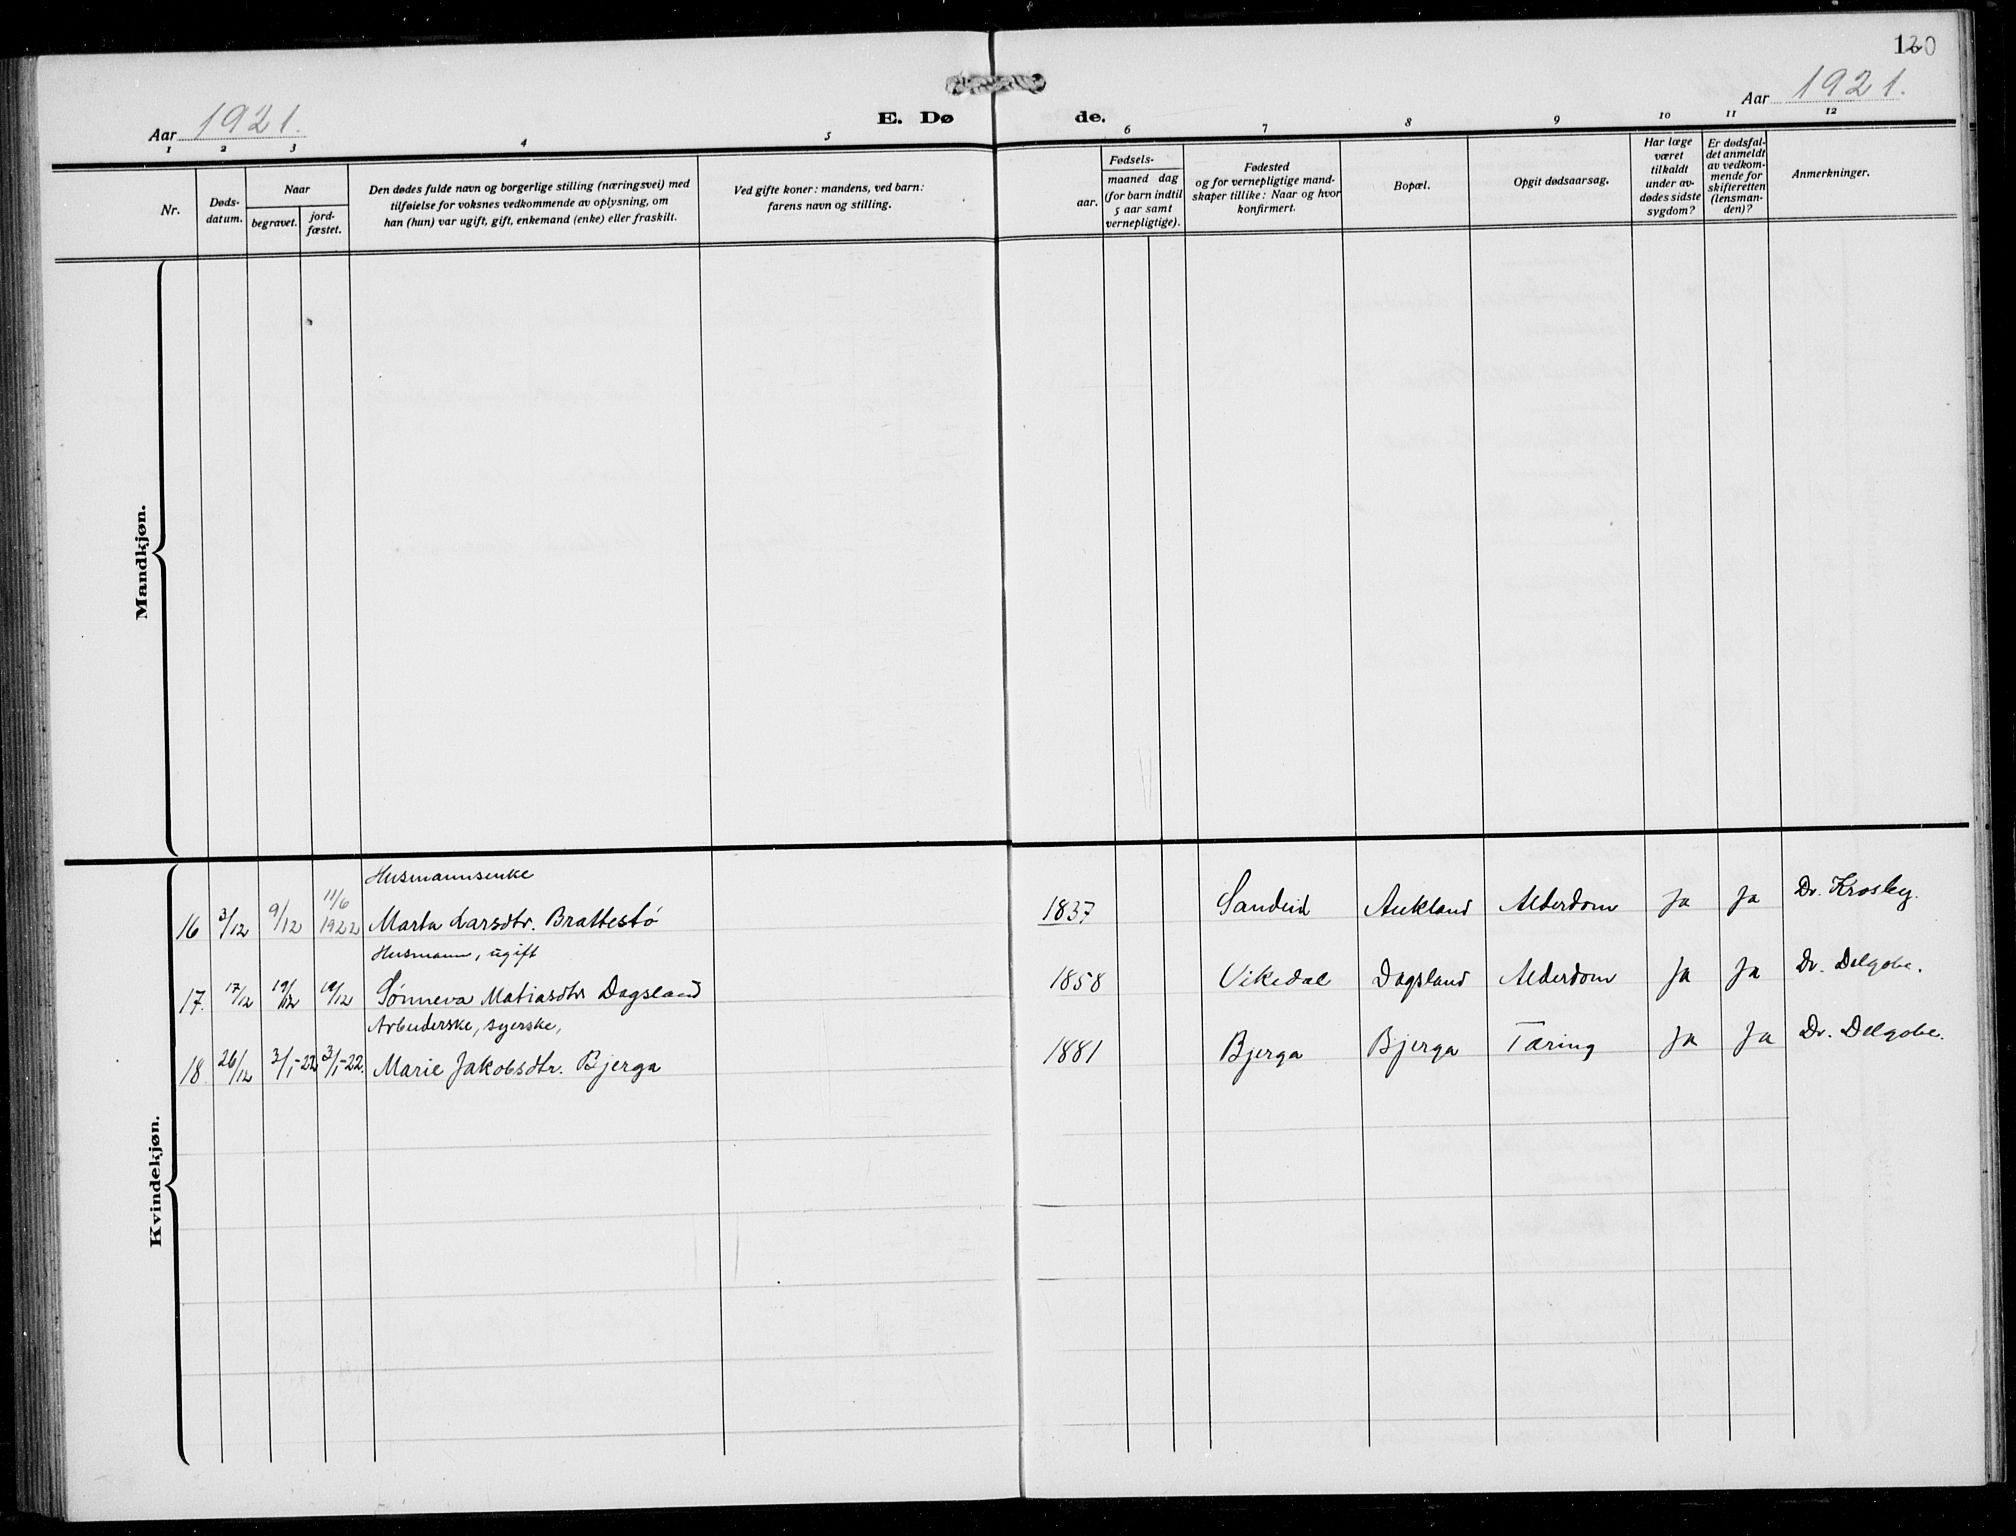 120
Aar 1921.
E. Dø de.
Aar 1921.
1 2 3 4 5 6 7 8 9 10 11 12
Nr.
Døds-
datum.
Naar
begravet.
jord-
fæstet.
Den dødes fulde navn og borgerlige stilling (næringsvei) med
tilføielse for voksnes vedkommende av oplysning, om
han (hun) var ugift, gift, enkemand (enke) eller fraskilt.
Ved gifte koner: mandens, ved barn:
farens navn og stilling.
aar.
Fødsels-
maaned dag
(for barn indtil
5 aar samt
vernepligtige).
Fødested
og for vernepligtige mand-
skaper tillike: Naar og hvor
konfirmert.
Bopæl.
Opgit dødsaarsag.
Har læge
været
tilkaldt
under av-
dødes sidste
sygdom?
Er dødsfal-
det anmeldt
av vedkom-
mende for
skifteretten
(lensman-
den)?
Anmerkninger.
Mandkjøn.
Kvindekjøn.
Husmannsenke
16 3/12 9/12 11/6 1922 Marta Larsdtr. Brattestø 1837 Sandeid Aukland Alderdom Ja Ja Dr. Krosby.
Husmann, ugift
17. 17/12 19/12 19/12 Sønneva Matiasdtr Dagsland 1858 Vikedal Dagsland Alderdom Ja Ja Dr. Delgobe.
Arbeiderske, syerske,
18. 26/12 3/1-22 3/1-22. Marie Jakobsdtr. Bjerga 1881 Bjerga Bjerga Tæring Ja Ja Dr. Delgobe.